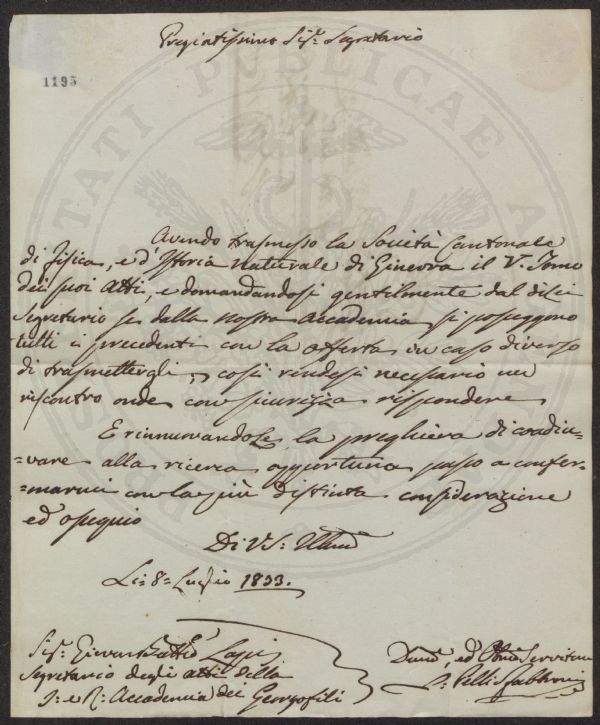 Pregiatissimo Sig.r Segretario
1195
Avendo trasmesso la Società Cantonale
di fisica, e d'Istoria naturale di Ginevra il V. Tomo
dei suoi Atti, e domandandosi gentilmente dal di lei
Segretario se dalla nostra Accademia si posseggono
tutti i precedenti con la offerta in caso diverso
di trasmettergli, così rendesi necessario un
riscontro onde con sicurezza rispondere
E rinnuovandole la preghiera di coadiu-
=vare alla ricerca opportuna passo a confer-
=marmi con la più distinta considerazione
ed ossequio
Di VS: Illma
Li= 8= Luglio 1833.
Sig.r Giovan Batta Lapi
Segretario degli atti della
I. e R. Accademia dei Georgofili
Devmo, ed Obbmo Servitore
Pelli Fabbroni